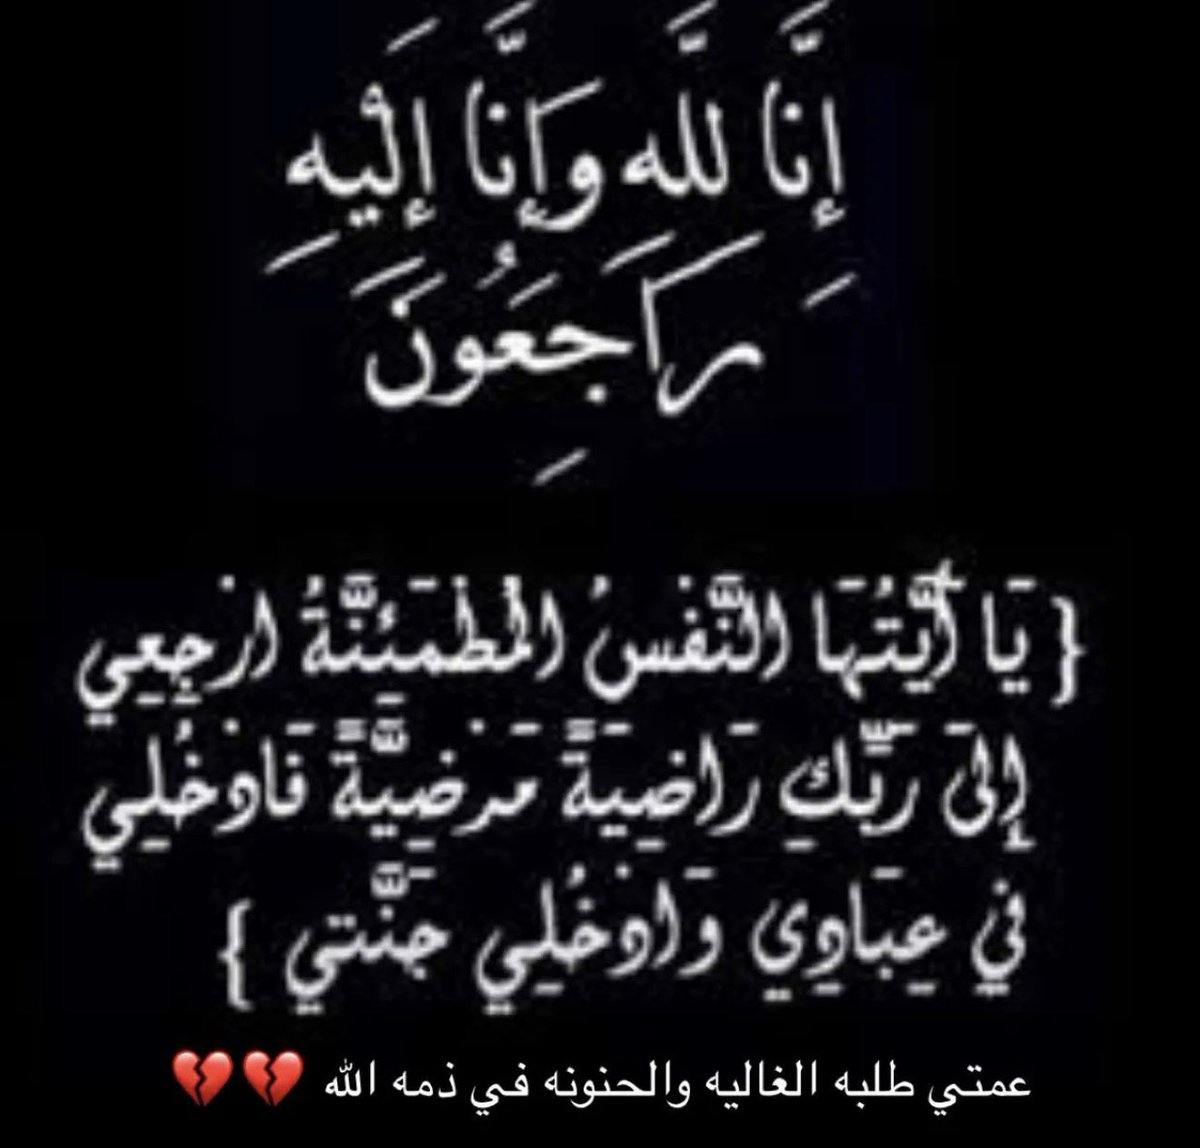 إِنَّا لله وَإِنَّا إِلَيْهِ
رَاجِعُونَ
{ يَا أَيَّتُهَا النَّفْسُ الْمُطْمَئِنَّةُ ارْجِعِي
إِلَى رَبِّكِ رَاضِيَةً مَرْضِيَّةً فَادْخُلِي
فِي عِبَادِي وَادْخُلِي جَنَّتِي }
عمتي طلبه الغاليه والحنونه في ذمه الله 💔💔